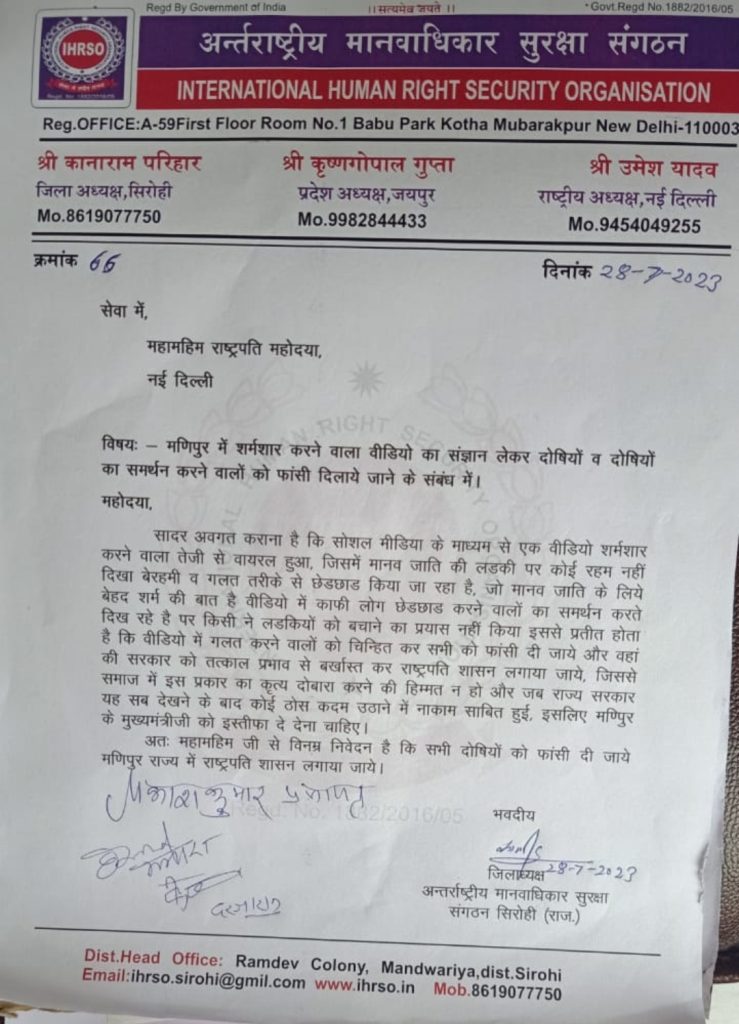 Regd By Government of India ।।सत्यमेव जयते ।। Govt.Regd No.1882/2016/05
IHRSO
अर्न्तराष्ट्रीय मानवाधिकार सुरक्षा संगठन
INTERNATIONAL HUMAN RIGHT SECURITY ORGANISATION
Reg.OFFICE:A-59First Floor Room No.1 Babu Park Kotha Mubarakpur New Delhi-110003
श्री कानाराम परिहार श्री कृष्णगोपाल गुप्ता श्री उमेश यादव
जिला अध्यक्ष,सिरोही प्रदेश अध्यक्ष,जयपुर राष्ट्रीय अध्यक्ष,नई दिल्ली
Mo.8619077750 Mo.9982844433 Mo.9454049255
क्रमांक 66 दिनांक 28-7-2023
सेवा में,
महामहिम राष्ट्रपति महोदया,
नई दिल्ली
विषयः – मणिपुर में शर्मशार करने वाला वीडियो का संज्ञान लेकर दोषियों व दोषियों
का समर्थन करने वालों को फांसी दिलाये जाने के संबंध में।
महोदया,
सादर अवगत कराना है कि सोशल मीडिया के माध्यम से एक वीडियो शर्मशार
करने वाला तेजी से वायरल हुआ, जिसमें मानव जाति की लडकी पर कोई रहम नहीं
दिखा बेरहमी व गलत तरीके से छेडछाड किया जा रहा है, जो मानव जाति के लिये
बेहद शर्म की बात है वीडियो में काफी लोग छेडछाड करने वालों का समर्थन करते
दिख रहे है पर किसी ने लडकियों को बचाने का प्रयास नहीं किया इससे प्रतीत होता
है कि वीडियो में गलत करने वालों को चिन्हित कर सभी को फांसी दी जाये और वहां
की सरकार को तत्काल प्रभाव से बर्खास्त कर राष्ट्रपति शासन लगाया जाये, जिससे
समाज में इस प्रकार का कृत्य दोबारा करने की हिम्मत न हो और जब राज्य सरकार
यह सब देखने के बाद कोई ठोस कदम उठाने में नाकाम साबित हुई, इसलिए मण्पिुर
के मुख्यमंत्रीजी को इस्तीफा दे देना चाहिए।
अतः महामहिम जी से विनम्र निवेदन है कि सभी दोषियों को फांसी दी जाये
मणिपुर राज्य में राष्ट्रपति शासन लगाया जाये।
कुमार
Regd. No. 1882/2016/05
भवदीय
जिलाध्यक्ष 28-7-2023
अन्तर्राष्ट्रीय मानवाधिकार सुरक्षा
संगठन सिरोही (राज.)
Dist.Head Office: Ramdev Colony, Mandwariya,dist.Sirohi
Email:ihrso.sirohi@gmil.com www.ihrso.in Mob.8619077750